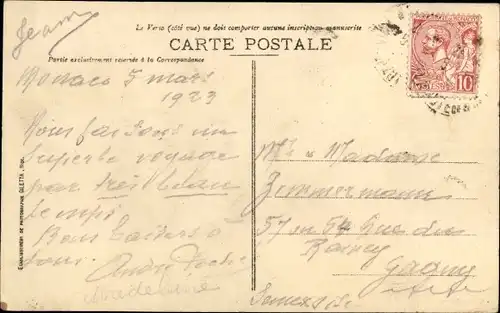 Jeam
Le Verso (côté vue) ne doit comporter aucune inscription manuscrite
CARTE POSTALE
Partie exclusivement réservée à la Correspondance
Monaco 5 mars
1923
Nous faisons un
superbe voyage
par très
temps
Bons baisers à
tous.
André
Madeleine
ÉTABLISSEMENT DE PHOTOGRAPHIE GILETTA, NICE.
10
Mr & Madame
Zimmermann
57 Rue du
Raincy
Gagny